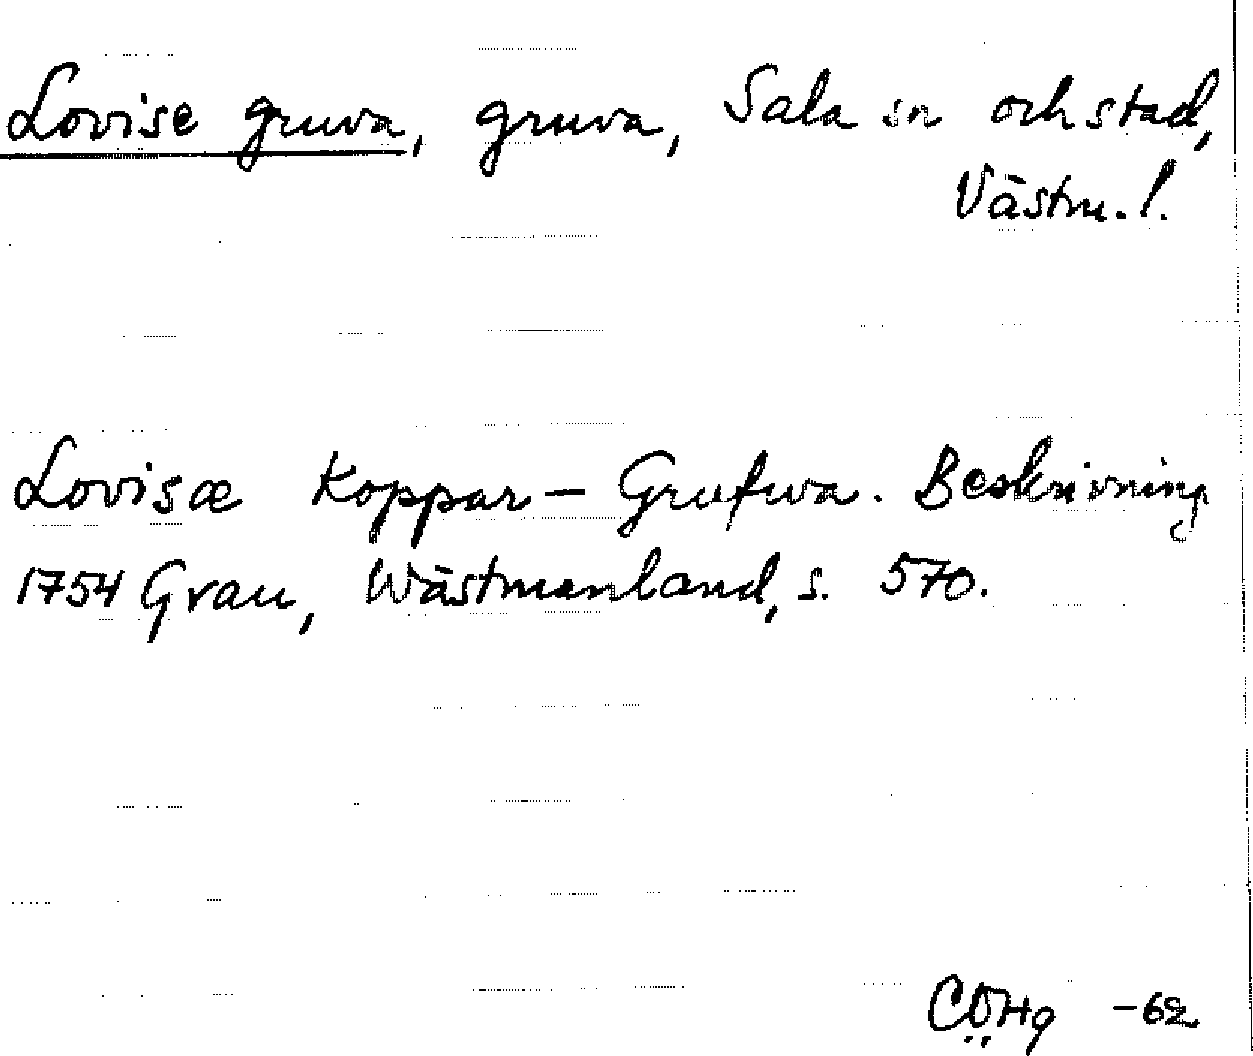 Lovise gruva, gruva, Sala sn och stad,
Västm. l.
Lovisæ Koppar-Grufwa. Beskrivning
1754 Grau, Wästmanland, s. 570.
CÖHg -62